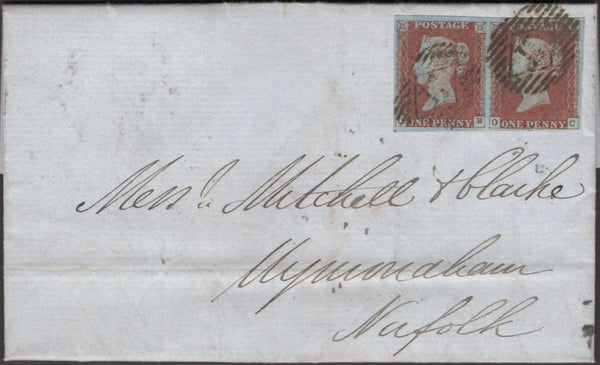 POSTAGE POSTAGE
B O C
ONE PENNY ONE PENNY
Mess.rs Mitchell & Clarke
Wymondham
Norfolk